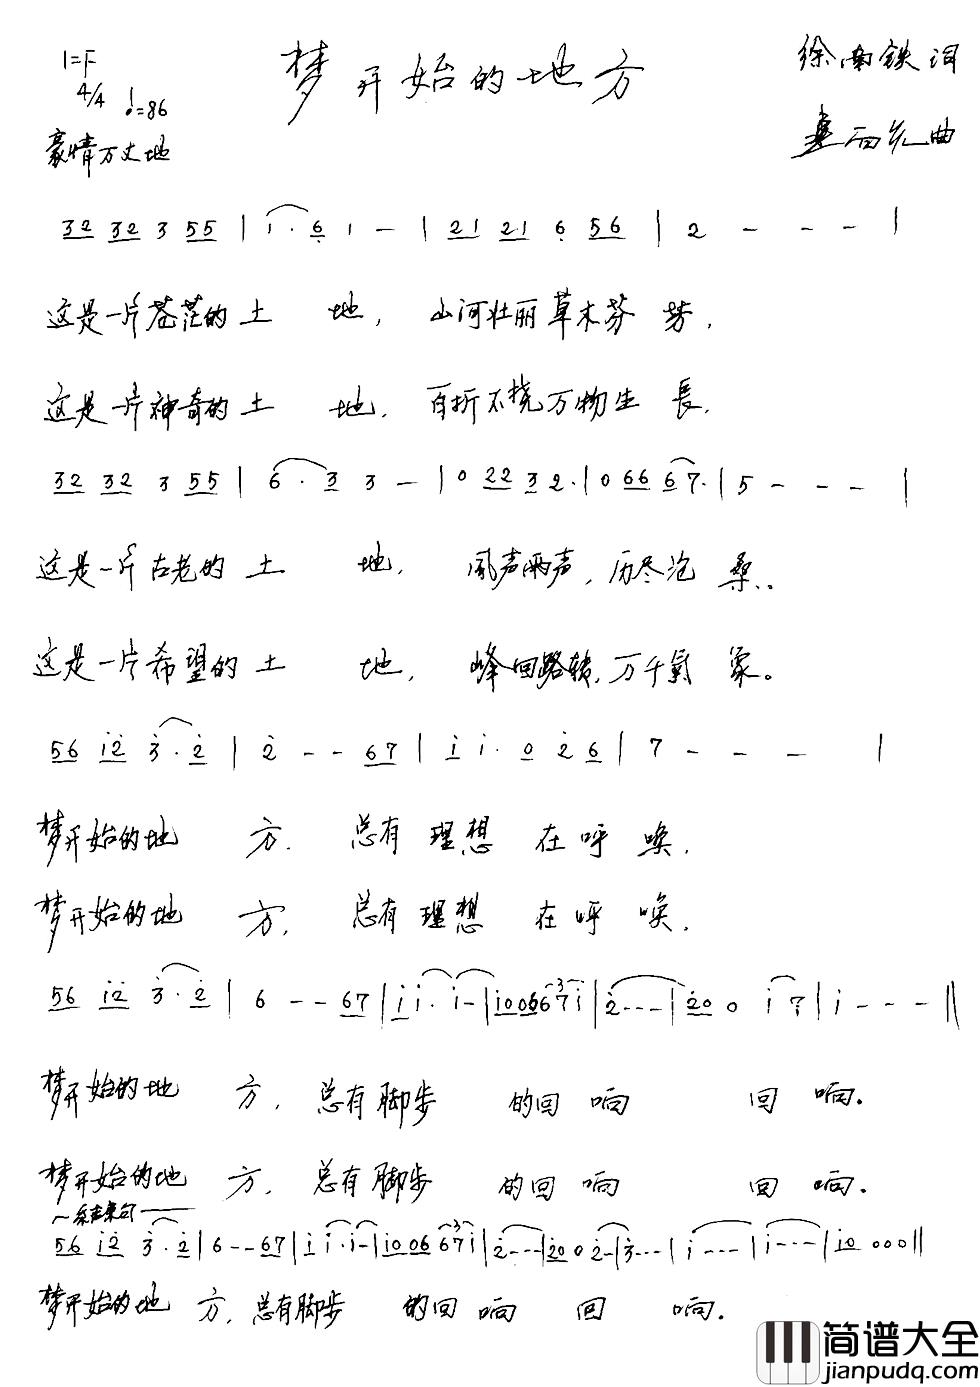 1=F
梦开始的地方
徐南铁词
4/4 ♩=86
豪情万丈地
曲
32 32 3 55 | 1·6 1 - | 21 21 6 56 | 2 - - - |
这是一片苍茫的土 地, 山河壮丽草木芬 芳,
这是一片神奇的土 地, 百折不挠万物生 長,
32 32 3 55 | 6·3 3 - | 0 22 3 2· | 0 66 6 7· | 5 - - - |
这是一片古老的土 地, 风声雨声,历尽沧 桑..
这是一片希望的土 地, 峰回路转,万千氣 象。
56 12 3·2 | 2 - - 67 | 1 1· 0 2 6 | 7 - - - |
梦开始的地 方, 总有 理想 在呼 唤,
梦开始的地 方, 总有 理想 在呼 唤,
56 12 3·2 | 6 - - 67 | 1 1· 1 - | 10 06 671 | 2 - - - | 20 0 1 7 | 1 - - - ||
梦开始的地 方, 总有脚步 的回 响 回 响.
梦开始的地 方, 总有脚步 的回 响 回 响.
~结束句
56 12 3·2 | 6 - - 67 | 1 1· 1 - | 10 06 671 | 2 - - - | 20 0 2 - | 3 - - - | 1 - - - | 1 - - - | 10 0 0 0 ||
梦开始的地 方, 总有脚步 的回 响 回 响.
简谱大全
jianpudq.com